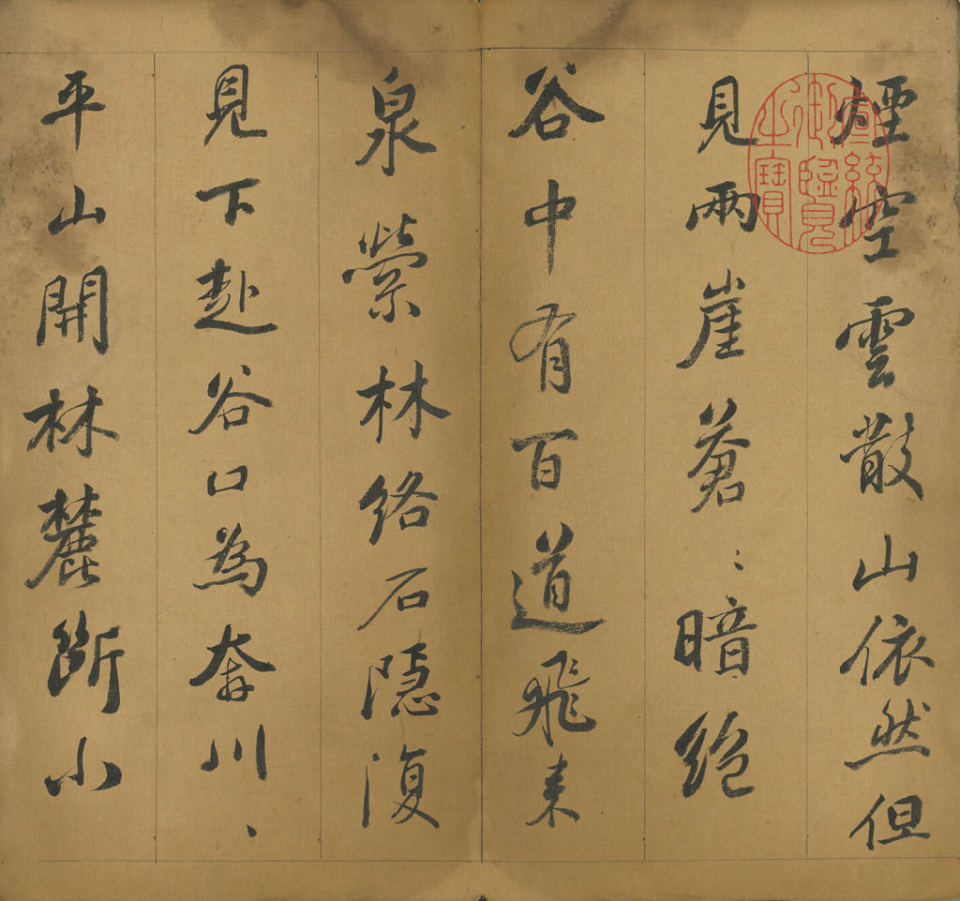 煙空雲散山依然但
見兩崖蒼〻暗絕
谷中有百道飛來
泉縈林絡石隱復
見下赴谷口為奔川〻
平山開林麓斷小
宣統御覽之寶